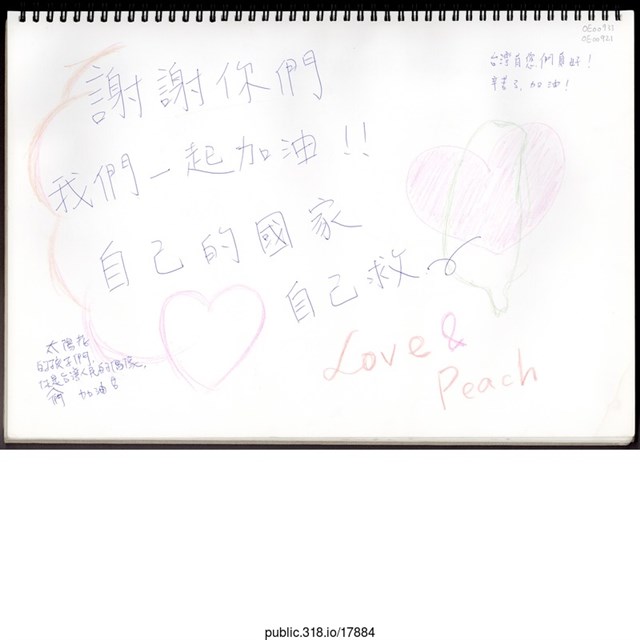 OE00921
OE00921
台灣有您們真好！
辛苦了，加油！
謝謝你們
我們一起加油！！
自己的國家
自己救
Love &
Peach
太陽花
的孩子們
你是台灣人民的偶像，
們 加油
public.318.io/17884